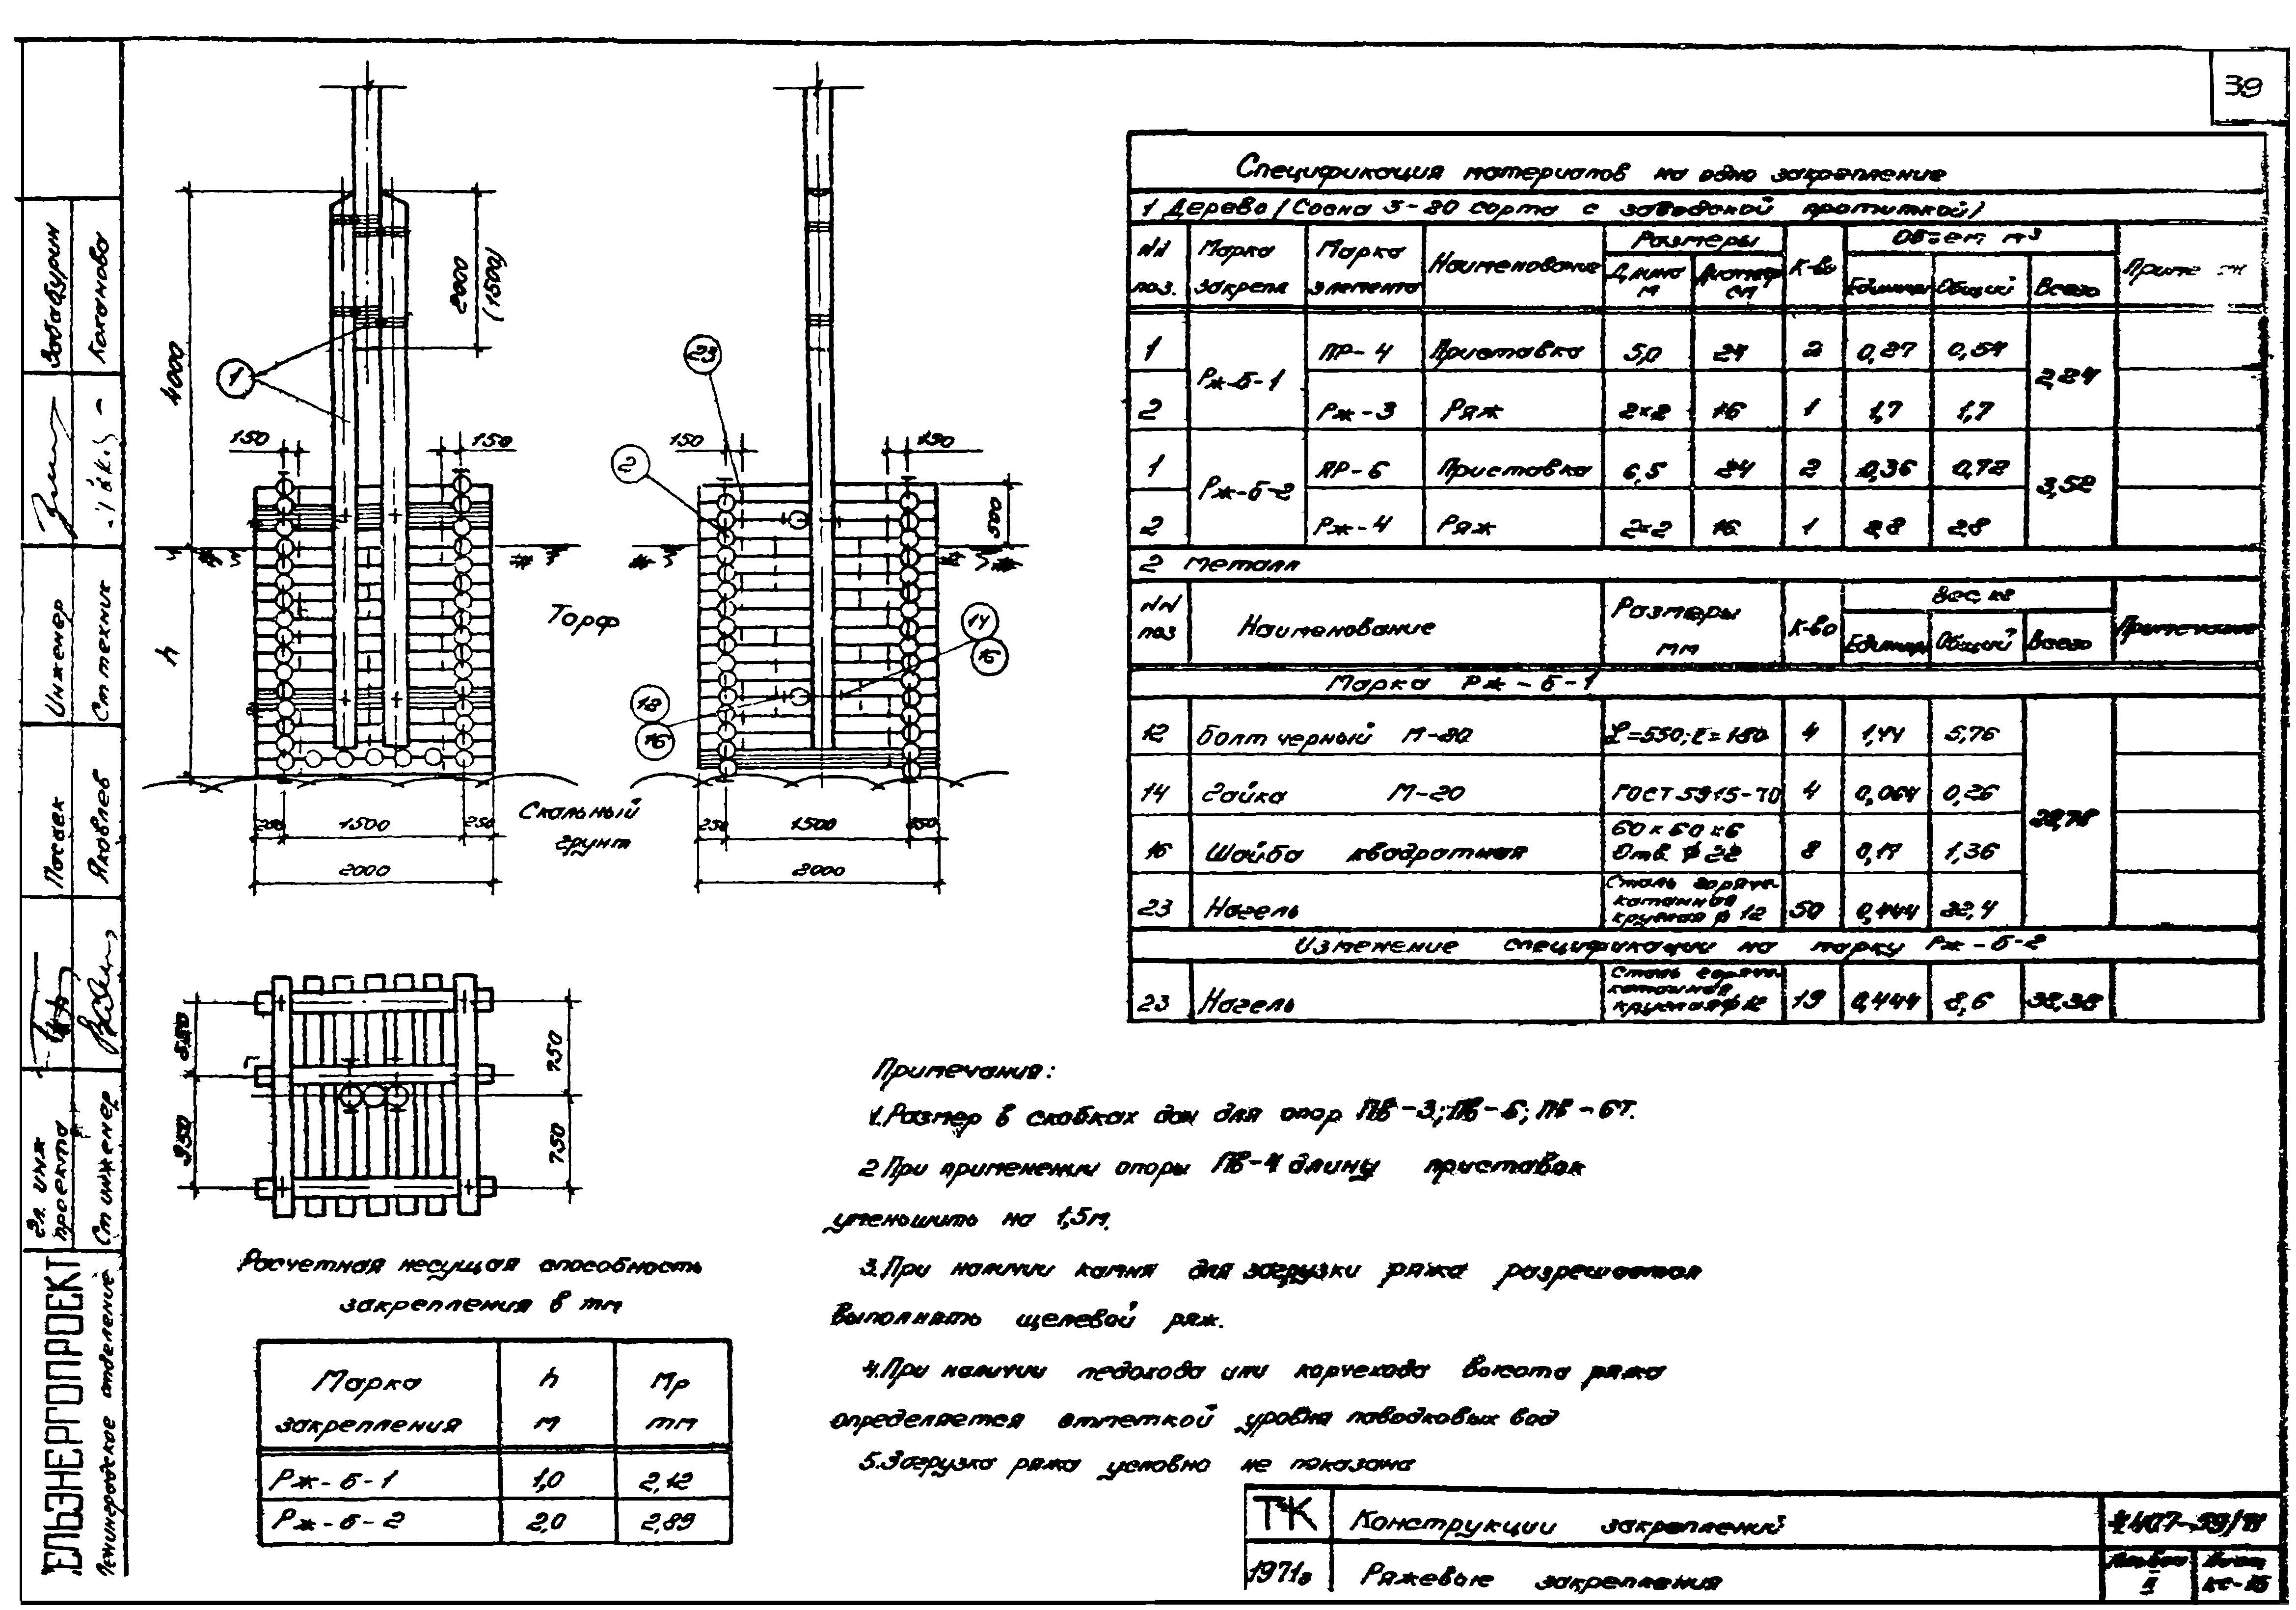 39
Спецификация материалов на одно закрепление
1 Дерево (Сосна 3-го сорта с заводской пропиткой)
NN поз. Марка закрепл Марка элемента Наименование Размеры Длина м Диаметр см К-во Объем м³ Единицы Общий Всего
1 Рж-Б-1 ПР-4 Приставка 5,0 24 2 0,27 0,54 2,24
2 Рж-3 Ряж 2×2 16 1 1,7 1,7
1 Рж-Б-2 ПР-6 Приставка 6,5 24 2 0,36 0,72 3,52
2 Рж-4 Ряж 2×2 16 1 2,8 2,8
2 Металл
NN поз Наименование Размеры мм К-во Вес кг Единицы Общий Всего Примечание
Марка Рж-Б-1
12 Болт черный М-20 L=550; l=180 4 1,44 5,76
14 Гайка М-20 ГОСТ 5915-70 4 0,064 0,26
16 Шайба квадратная 60×60×6 Отв. ф 22 8 0,17 1,36
23 Нагель Сталь горяче-катанная круглая ф 12 50 0,444 22,4
Изменение спецификации на марку Рж-Б-2
23 Нагель Сталь горяче-катанная круглая ф 12 19 0,444 8,6 38,38
4000
2000
(1500)
1
23
2
150
150
150
150
500
h
Торф
14
16
12
16
Скальный
грунт
250 1500 250
2000
250 1500 250
2000
750
750
Расчетная несущая способность
закрепления в тм
Марка закрепления h м Мр тм
Рж-Б-1 1,0 2,12
Рж-Б-2 2,0 2,89
Примечания:
1. Размер в скобках дан для опор ПВ-3; ПВ-Б; ПВ-6Т.
2 При применении опоры ПВ-4 длину приставок
уменьшить на 1,5м.
3. При наличии камня для загрузки ряжа разрешается
выполнять щелевой ряж.
4. При наличии ледохода или корчехода высота ряжа
определяется отметкой уровня паводковых вод
5. Загрузка ряжа условно не показана
ТК Конструкции закреплений
1971г Ряжевые закрепления
Альбом II Лист
ЕЛЬЭНЕРГОПРОЕКТ
отделение
Гл. инж проекта Посяек Инженер
Ст инженер Яковлев Ст техник Каганова